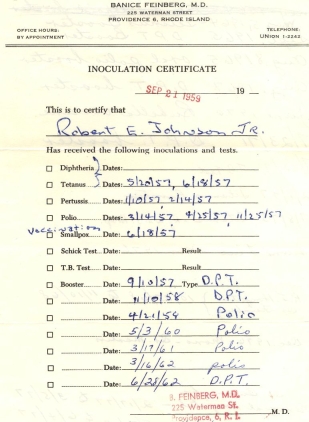 BANICE FEINBERG, M.D.
225 WATERMAN STREET
PROVIDENCE 6, RHODE ISLAND
OFFICE HOURS:
BY APPOINTMENT
TELEPHONE:
UNION 1-2242
INOCULATION CERTIFICATE
SEP 21 1959 19
This is to certify that
Robert E. Johnson Jr.
Has received the following inoculations and tests.
Diphtheria Dates:
Tetanus Dates: 5/20/57, 6/18/57
Pertussis Dates: 1/10/57 2/14/57
Polio Dates: 3/14/57 4/25/57 11/25/57
vaccination
Smallpox Date: 6/18/57
Schick Test Date: Result
T.B. Test Date: Result
Booster Date: 9/10/57 Type D.P.T.
Date: 11/10/58 D.P.T.
Date: 4/21/59 Polio
Date: 5/3/60 Polio
Date: 3/17/61 Polio
Date: 3/16/62 polio
Date: 6/28/62 D.P.T.
B. FEINBERG, M.D.
225 Waterman St.
Providence, 6, R. I.
M. D.